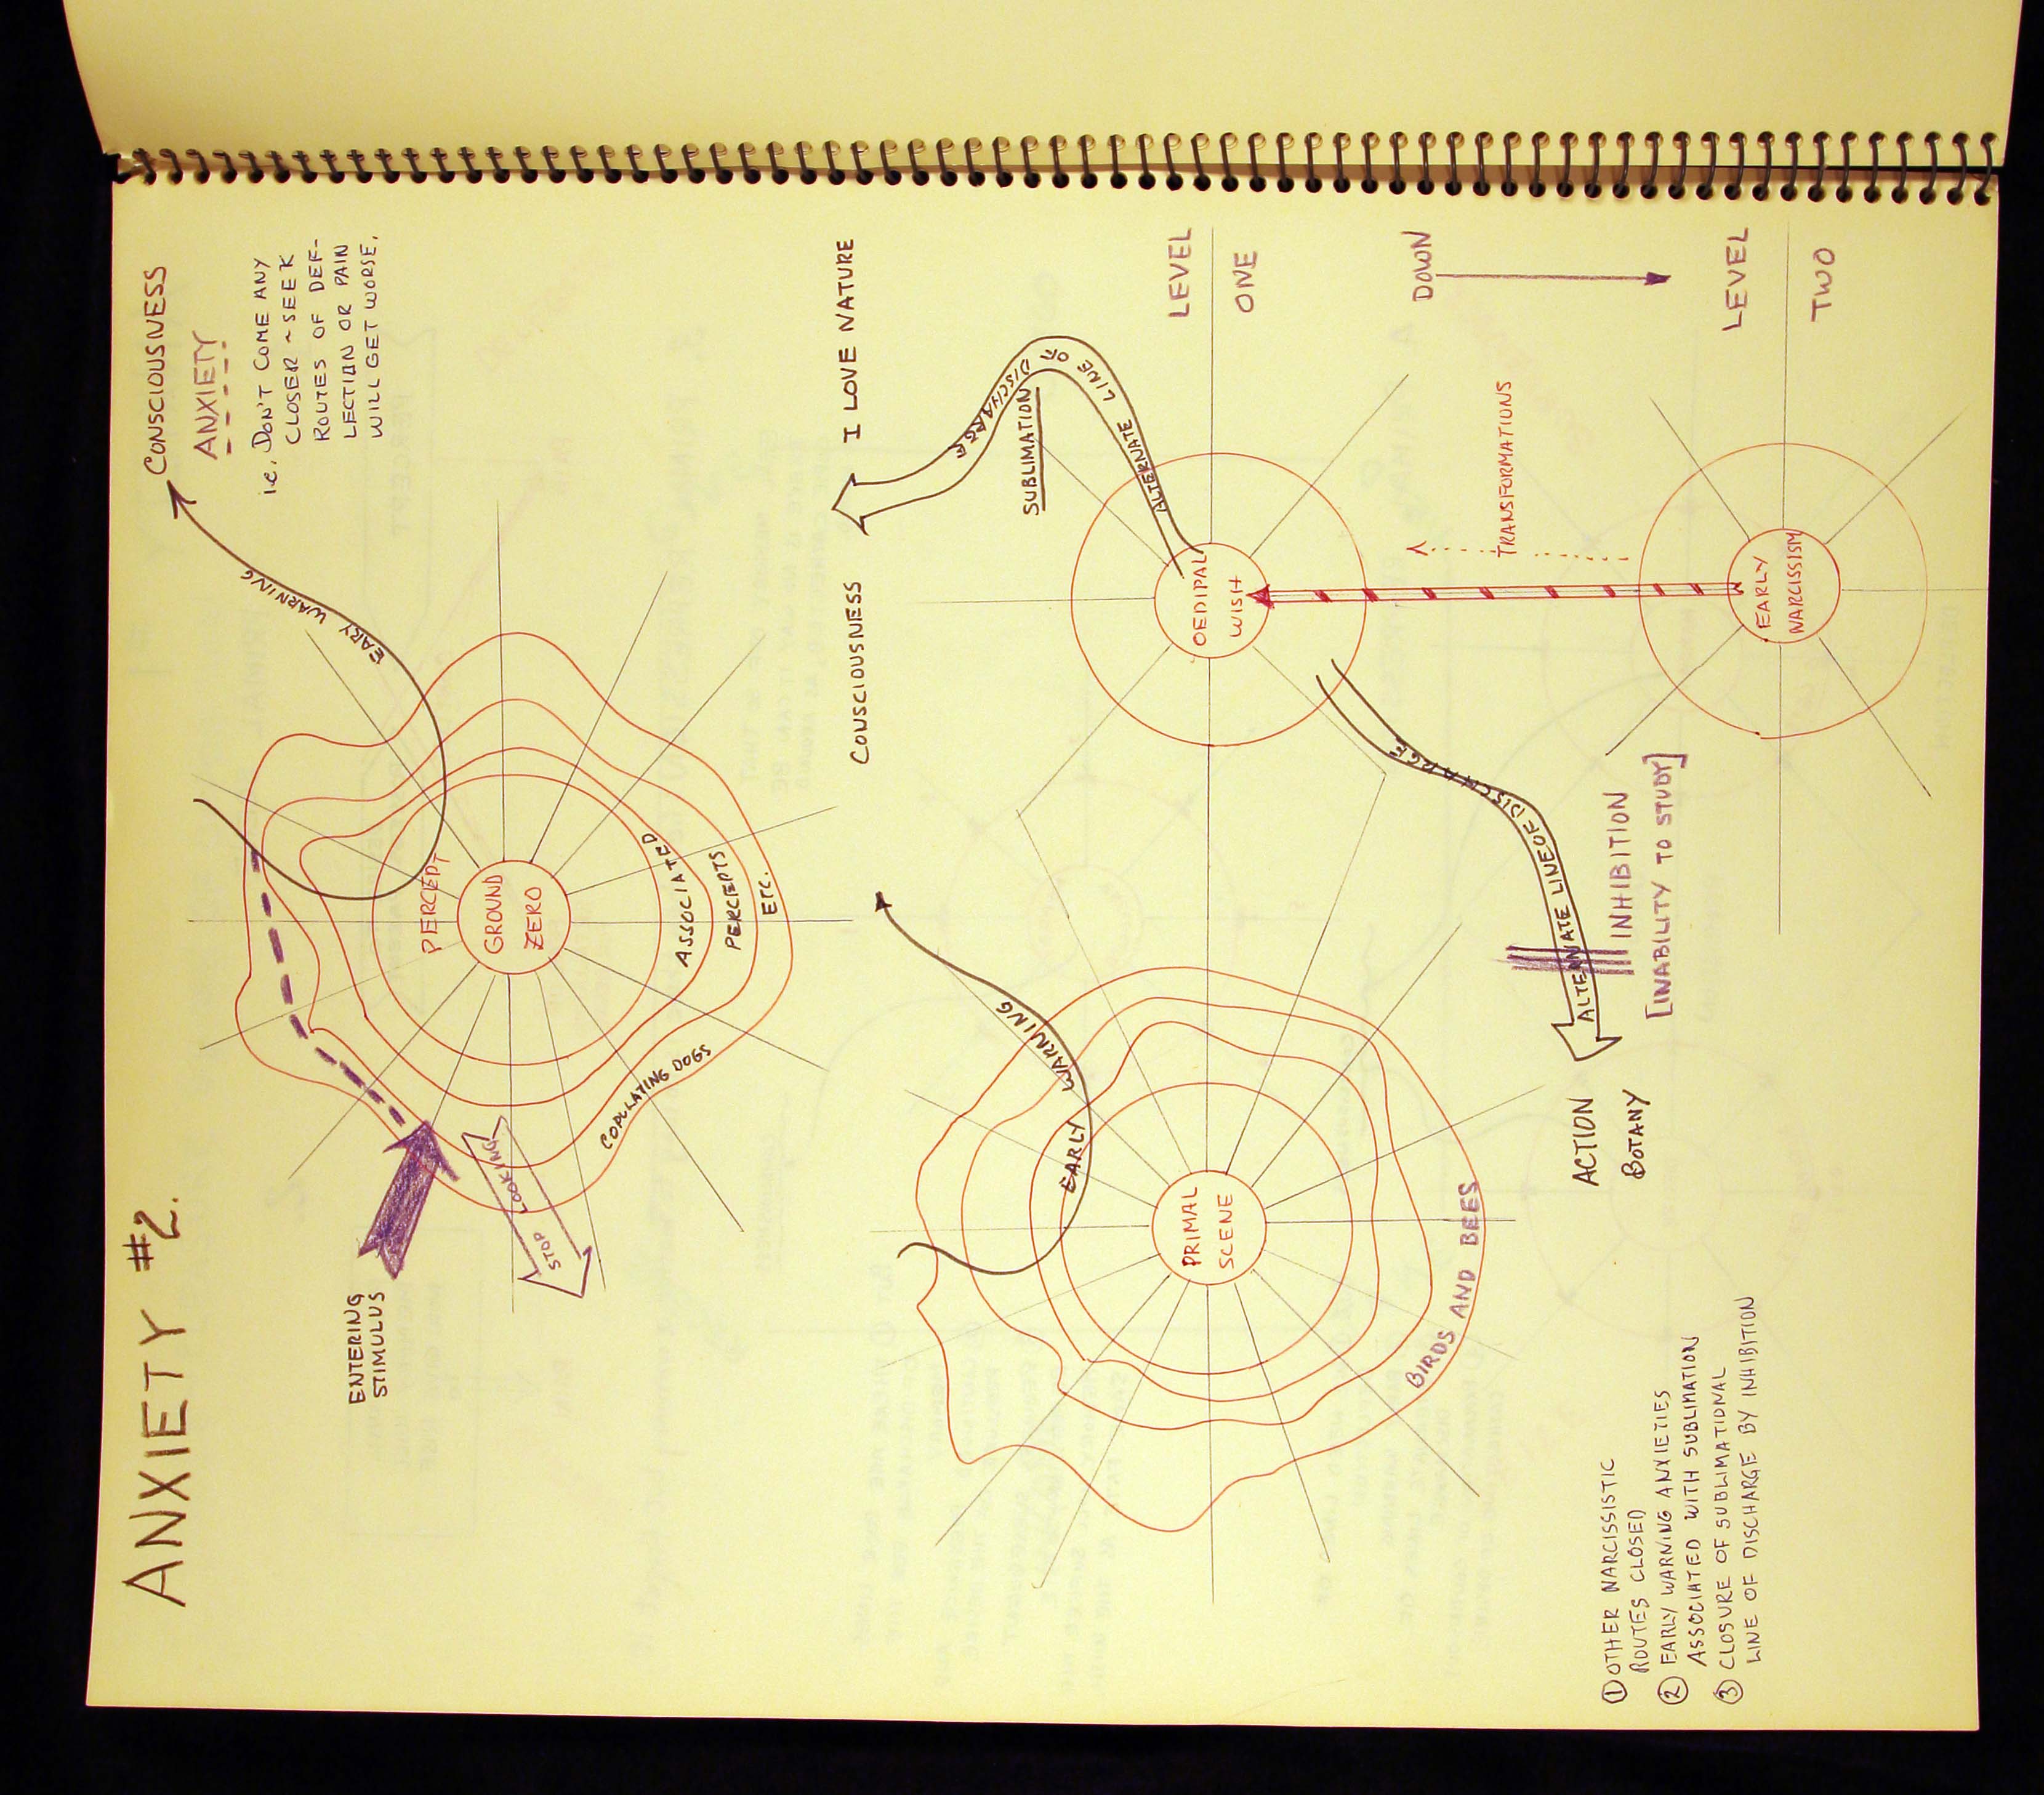 ANXIETY #2.
CONSCIOUSNESS
ANXIETY
i.e. DON'T COME ANY
CLOSER ~ SEEK
ROUTES OF DEF-
LECTION OR PAIN
WILL GET WORSE.
EARY WARNING
ENTERING
STIMULUS
PERCEPT
GROUND
ZERO
STOP LOOKING
ASSOCIATED
PERCEPTS
ETC.
COPULATING DOGS
CONSCIOUSNESS
I LOVE NATURE
ALTERNATE LINE OF DISCHARGE
SUBLIMATION
EARLY WARNING
PRIMAL
SCENE
BIRDS AND BEES
OEDIPAL
WISH
LEVEL
ONE
DOWN
TRANSFORMATIONS
LEVEL
TWO
EARLY
NARCISSISM
ALTERNATE LINE OF DISCHARGE
INHIBITION
[INABILITY TO STUDY]
ACTION
BOTANY
① OTHER NARCISSISTIC
ROUTES CLOSED
② EARLY WARNING ANXIETIES
ASSOCIATED WITH SUBLIMATION
③ CLOSURE OF SUBLIMATIONAL
LINE OF DISCHARGE BY INHIBITION